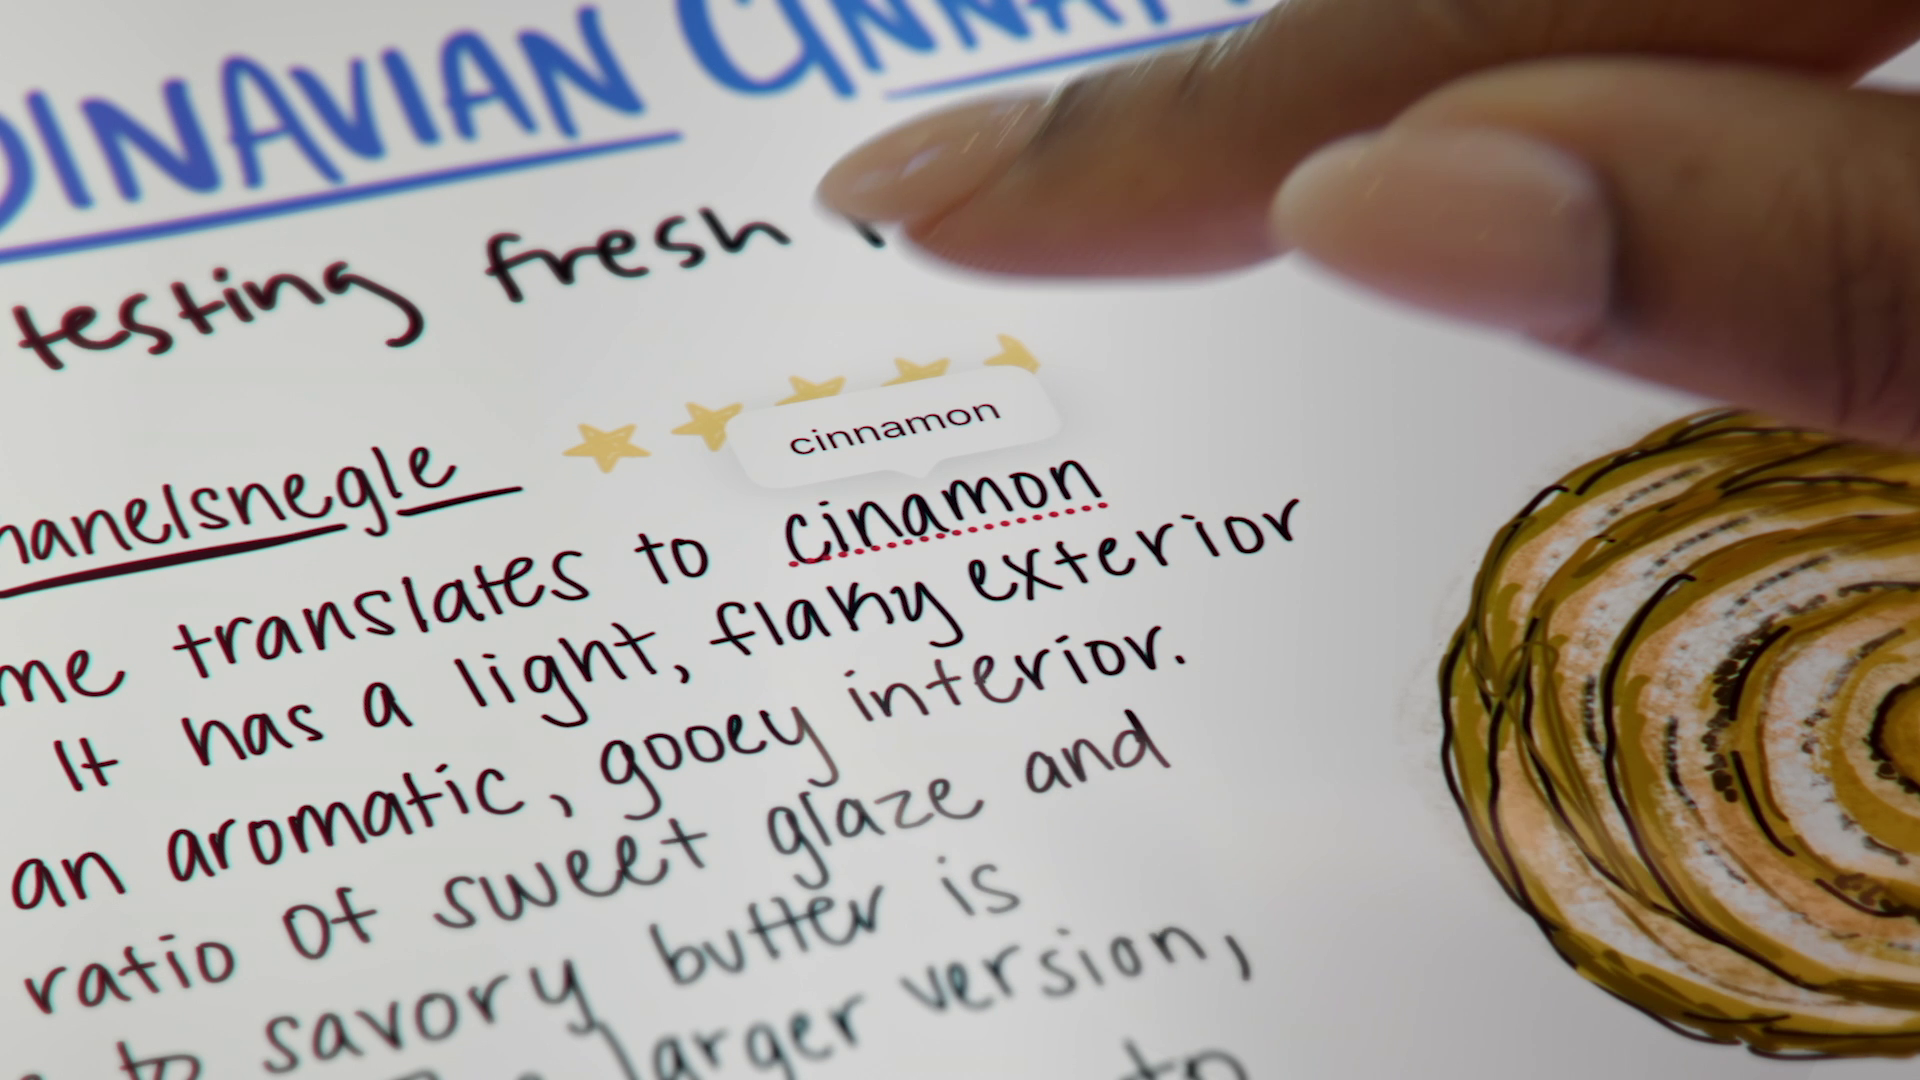 DINAVIAN CINNAM
testing fresh
nanelsnegle
cinnamon
me translates to cinamon
It has a light, flaky exterior
an aromatic, gooey interior.
ratio of sweet glaze and
to savory butter is
larger version,
to